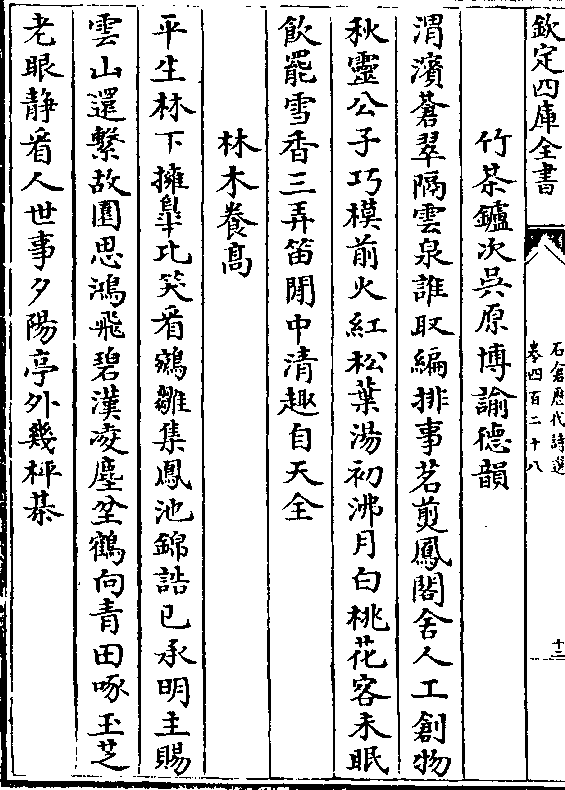 欽定四庫全書
石倉歷代詩選
卷四百二十八
十二
竹茶鑪次吳原博諭德韻
渭濱蒼翠隔雲泉誰取編排事茗煎鳳閣舍人工創物
秋靈公子巧模前火紅松葉湯初沸月白桃花客未眠
飲罷雪香三弄笛閒中清趣自天全
林木養高
平生林下擁臯比笑看鵷雛集鳳池錦誥已承明主賜
雲山還繫故園思鴻飛碧漢凌塵坌鶴向青田啄玉芝
老眼静看人世事夕陽亭外幾枰棊